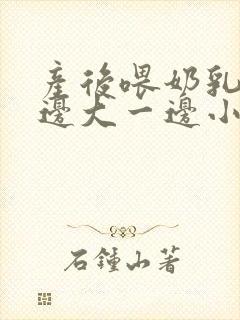 產後喂奶乳
邊大一邊小
石鍾山著